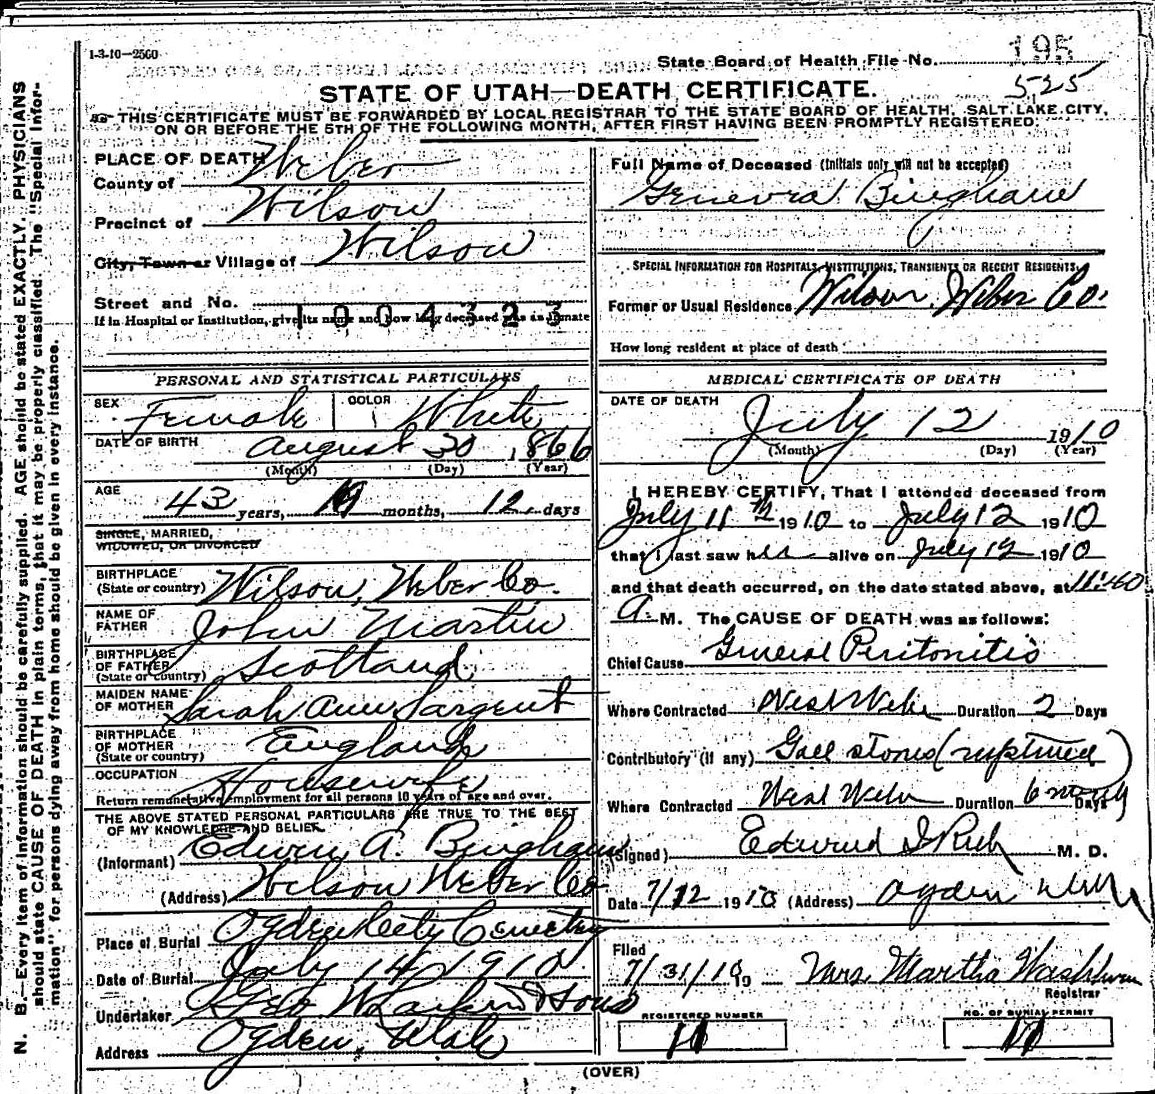 1-3-10—2560
State Board of Health File No. 195
525
STATE OF UTAH—DEATH CERTIFICATE.
THIS CERTIFICATE MUST BE FORWARDED BY LOCAL REGISTRAR TO THE STATE BOARD OF HEALTH, SALT LAKE CITY,
ON OR BEFORE THE 5TH OF THE FOLLOWING MONTH, AFTER FIRST HAVING BEEN PROMPTLY REGISTERED.
PLACE OF DEATH
County of Weber
Precinct of Wilson
City, Town or Village of Wilson
Street and No.
1004323
If in Hospital or Institution, give its name and how long deceased was an inmate
PERSONAL AND STATISTICAL PARTICULARS
SEX Female COLOR White
DATE OF BIRTH August 30, 1866
(Month) (Day) (Year)
AGE 43 years, months, 12 days
SINGLE, MARRIED,
WIDOWED, OR DIVORCED
BIRTHPLACE
(State or country) Wilson, Weber Co.
NAME OF
FATHER John Martin
BIRTHPLACE
OF FATHER
(State or country) Scotland
MAIDEN NAME
OF MOTHER Sarah Ann Sargent
BIRTHPLACE
OF MOTHER
(State or country) England
OCCUPATION Housewife
Return remunerative employment for all persons 10 years of age and over.
THE ABOVE STATED PERSONAL PARTICULARS ARE TRUE TO THE BEST
OF MY KNOWLEDGE AND BELIEF.
(Informant) Edwin A. Bingham
(Address) Wilson Weber Co
Place of Burial Ogden City Cemetry
Date of Burial July 14 1910
Undertaker Geo W Larkin & Sons
Address Ogden, Utah
Full Name of Deceased (Initials only will not be accepted)
Genevra Bingham
SPECIAL INFORMATION FOR HOSPITALS, INSTITUTIONS, TRANSIENTS OR RECENT RESIDENTS.
Former or Usual Residence Wilson, Weber Co.
How long resident at place of death
MEDICAL CERTIFICATE OF DEATH
DATE OF DEATH
July 12 1910
(Month) (Day) (Year)
I HEREBY CERTIFY, That I attended deceased from
July 11 1910 to July 12 1910
that I last saw her alive on July 12 1910
and that death occurred, on the date stated above, at 11:40
A. M. The CAUSE OF DEATH was as follows:
Chief Cause General Peritonitis
Where Contracted West Weber Duration 2 Days
Contributory (if any) Gall stones (ruptured)
Where Contracted West Weber Duration 6 Days
(Signed) Edward I Rich M. D.
Date 7/12 1910 (Address) Ogden Utah
Filed
7/31/1910 Mrs. Martha Washburn
Registrar
REGISTERED NUMBER
11
NO. OF BURIAL PERMIT
11
(OVER)
N. B.—Every item of information should be carefully supplied. AGE should be stated EXACTLY. PHYSICIANS
should state CAUSE OF DEATH in plain terms, that it may be properly classified. The "Special Infor-
mation" for persons dying away from home should be given in every instance.